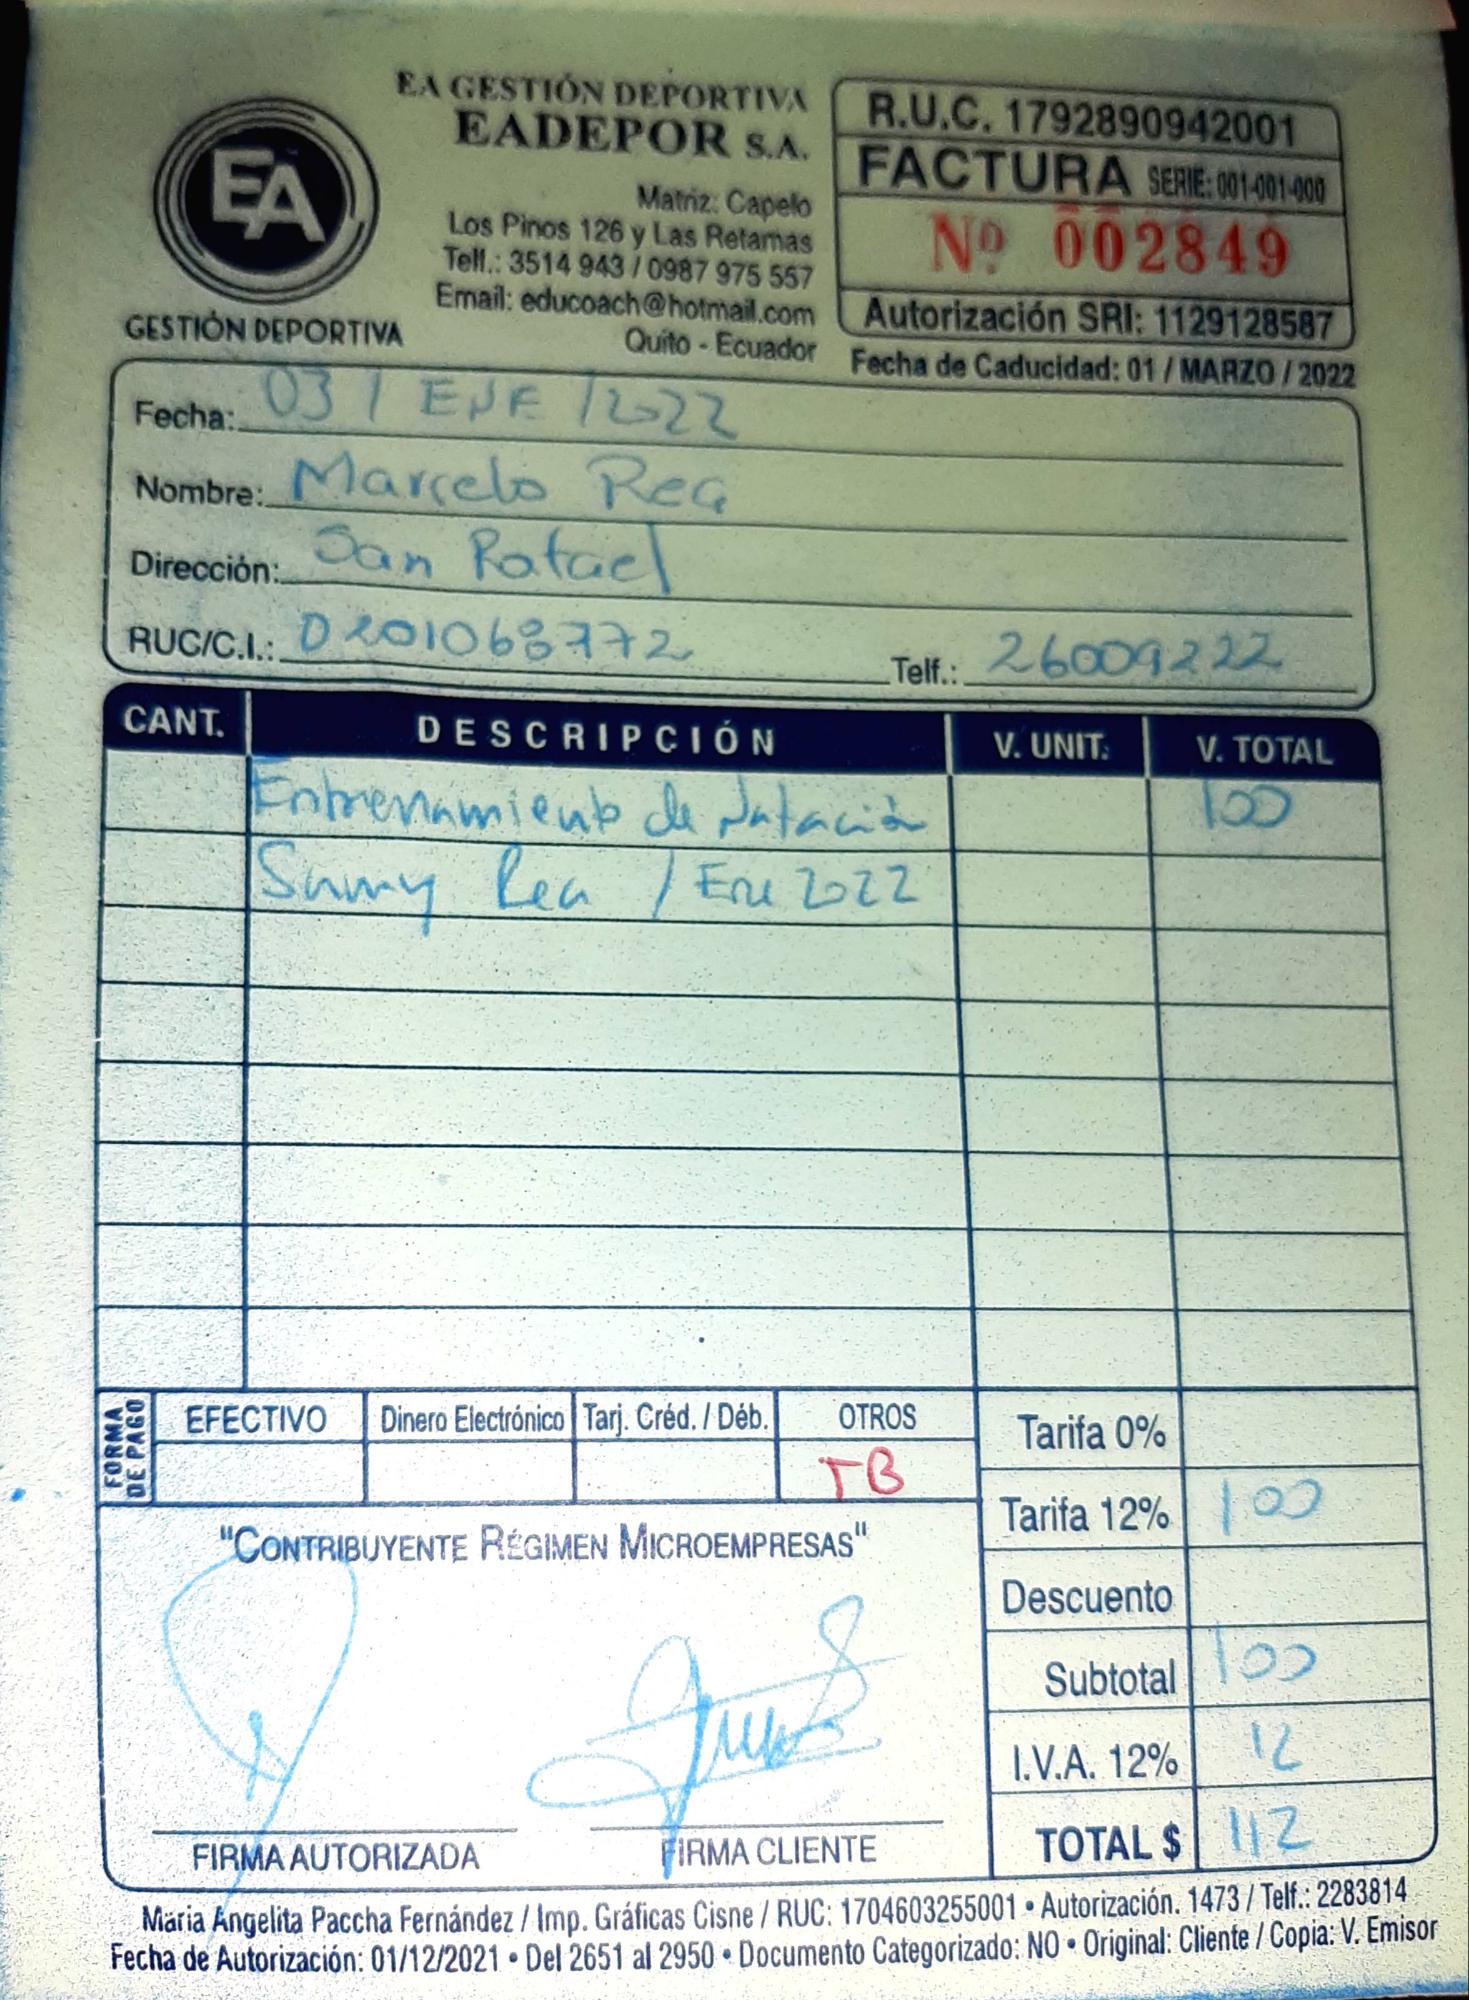 EA GESTIÓN DEPORTIVA
EADEPOR S.A.
EA
GESTIÓN DEPORTIVA
Matriz: Capelo
Los Pinos 126 y Las Retamas
Telf.: 3514 943 / 0987 975 557
Email: educoach@hotmail.com
Quito - Ecuador
R.U.C. 1792890942001
FACTURA SERIE: 001-001-000
Nº 002849
Autorización SRI: 1129128587
Fecha de Caducidad: 01 / MARZO / 2022
Fecha: 03 / ENE / 2022
Nombre: Marcelo Rea
Dirección: San Rafael
RUC/C.I.: 0201068772 Telf.: 26009222
CANT. DESCRIPCIÓN V. UNIT. V. TOTAL
Entrenamiento de Natación 100
Samy Rea / Ene 2022
FORMA DE PAGO
EFECTIVO Dinero Electrónico Tarj. Créd. / Déb. OTROS
TB
Tarifa 0%
Tarifa 12% 100
Descuento
Subtotal 100
I.V.A. 12% 12
TOTAL $ 112
"CONTRIBUYENTE RÉGIMEN MICROEMPRESAS"
FIRMA AUTORIZADA FIRMA CLIENTE
María Angelita Paccha Fernández / Imp. Gráficas Cisne / RUC: 1704603255001 • Autorización. 1473 / Telf.: 2283814
Fecha de Autorización: 01/12/2021 • Del 2651 al 2950 • Documento Categorizado: NO • Original: Cliente / Copia: V. Emisor